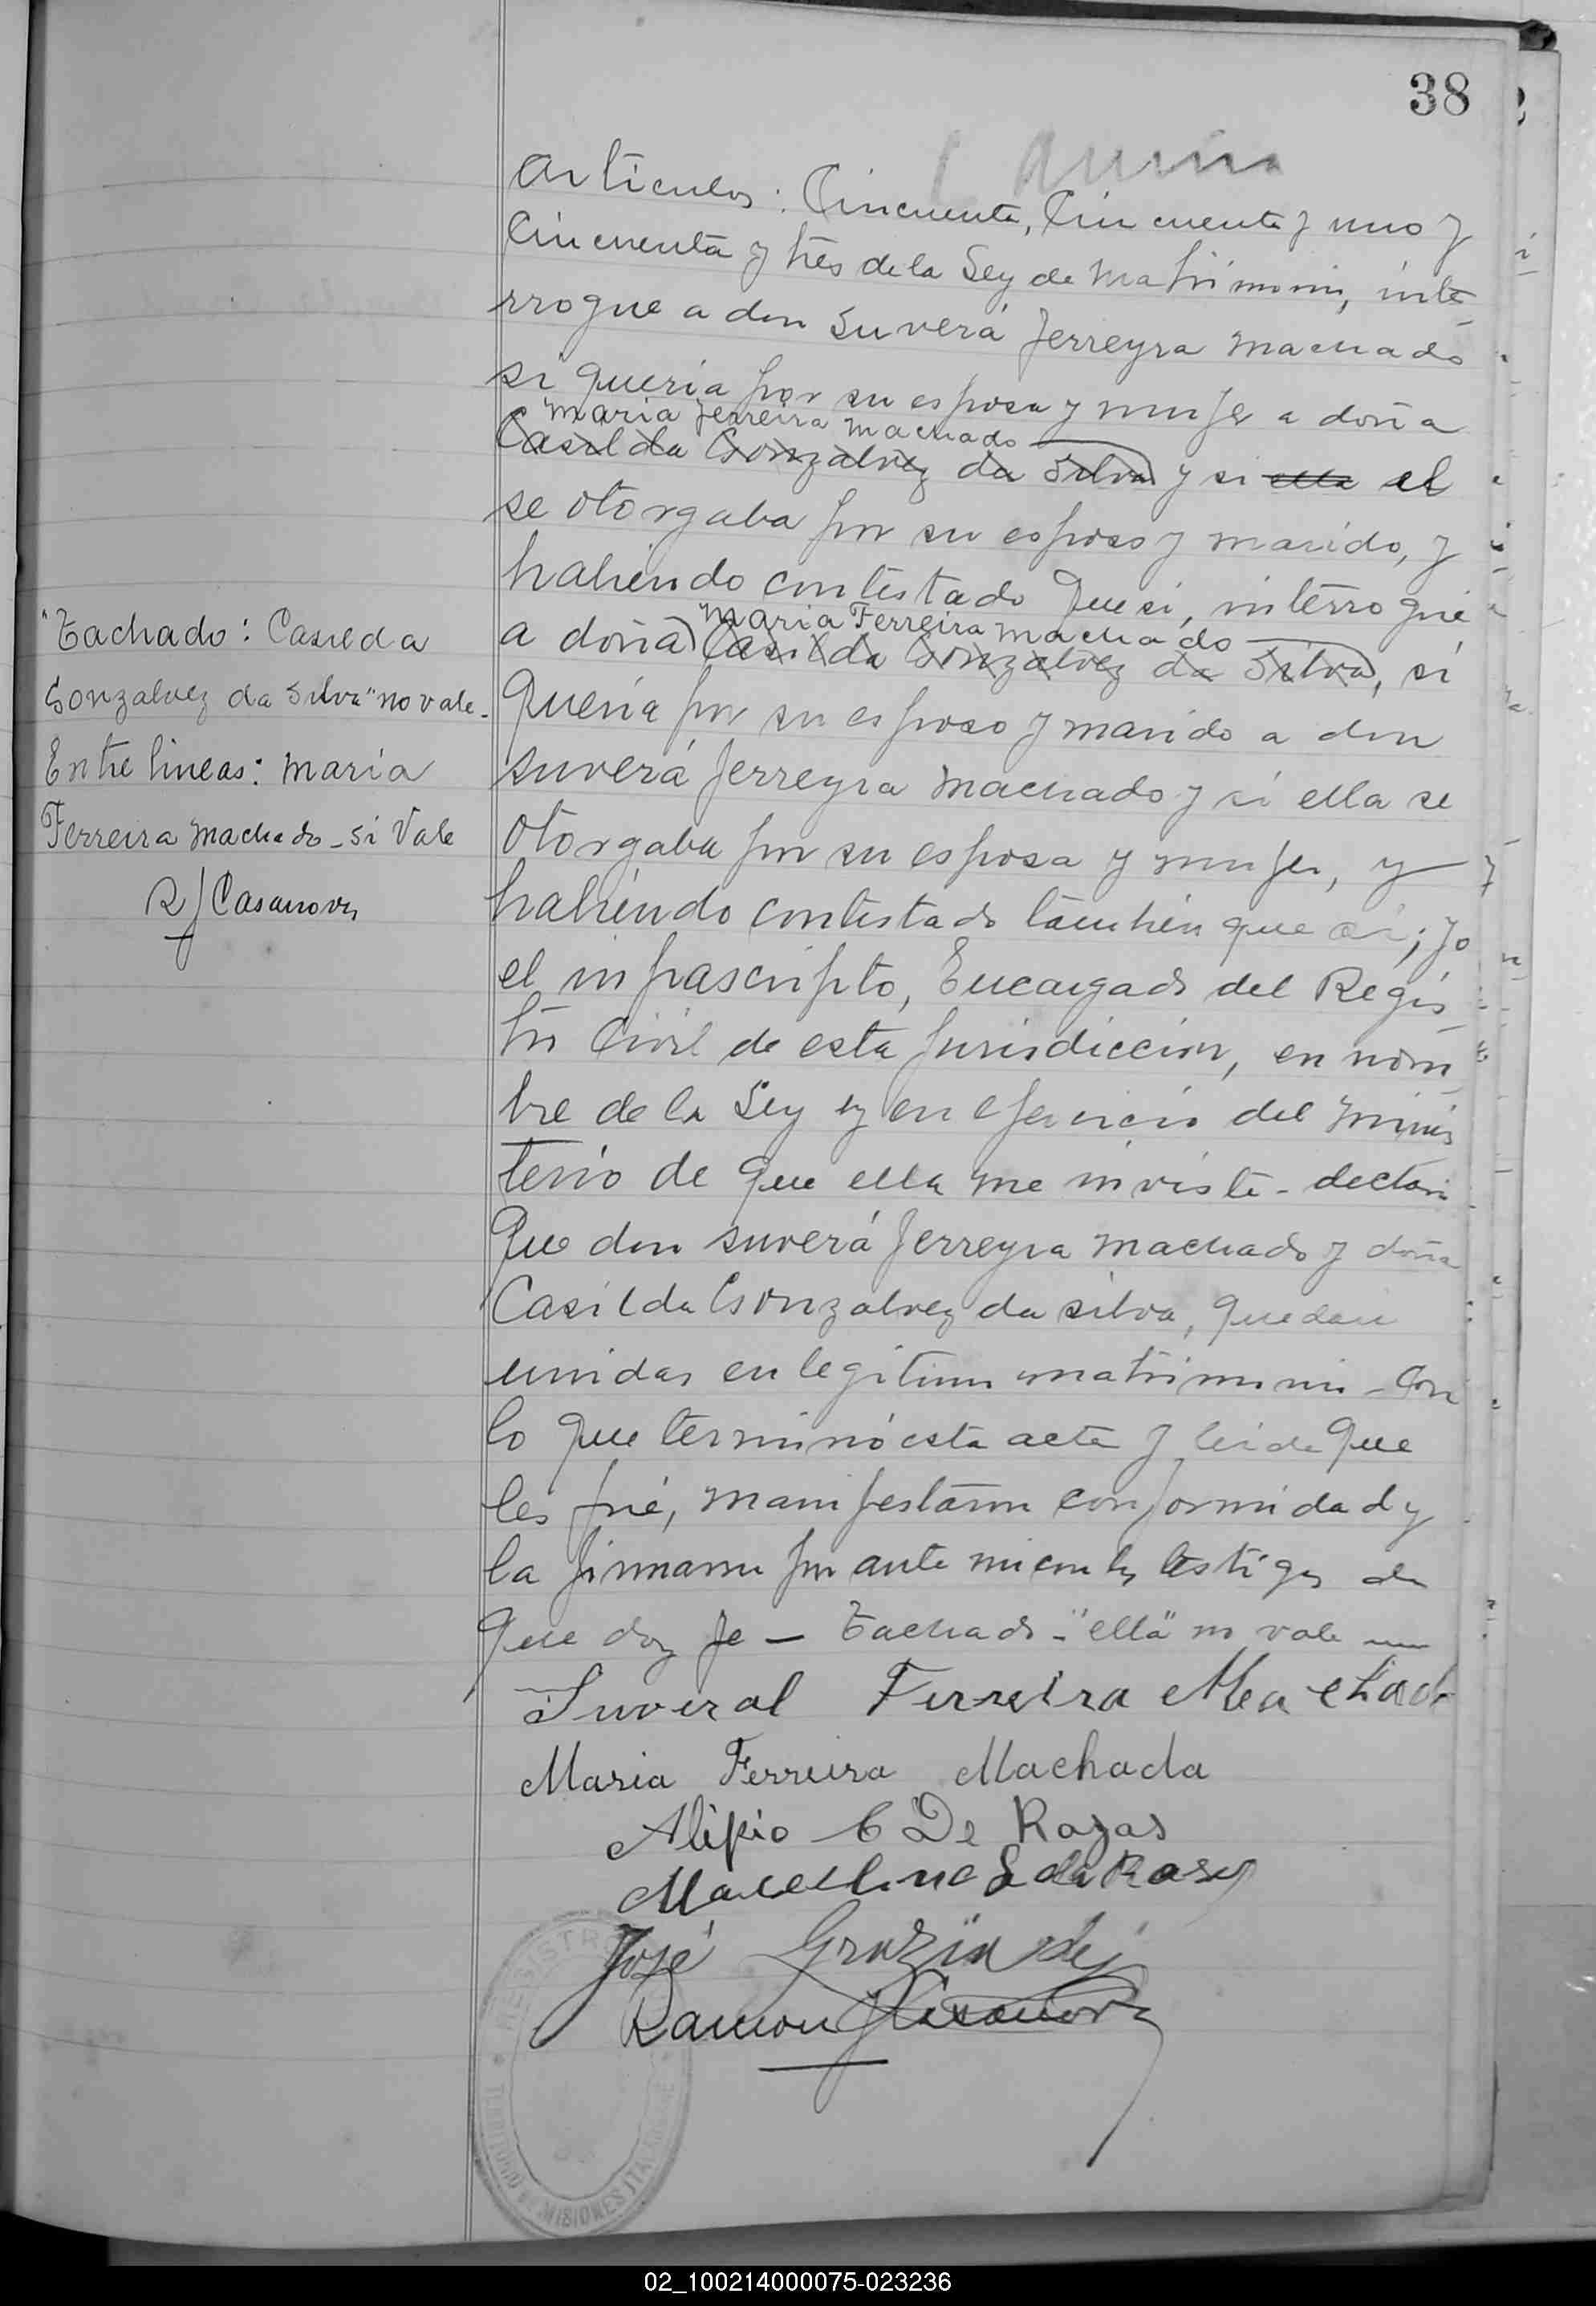 38
Articulos: Cincuenta, Cincuenta y uno y
Cincuenta y tres de la Ley de Matrimonio, inte-
rrogue a don Suverá Ferreyra Machado
si queria por su esposa y mujer a doña
Maria Ferreira Machado
Casilda Gonzalvez da Silva y si ella el
se otorgaba por su esposo y marido, y
habiendo contestado que si, interrogué
Maria Ferreira Machado
a doña Casilda Gonzalvez da Silva, si
queria por su esposo y marido a don
Suverá Ferreyra Machado y si ella se
otorgaba por su esposa y mujer, y
habiendo contestado también que si; yo
el infrascripto, Encargado del Regis
tro Civil de esta Jurisdiccion, en nom
bre de la Ley y en ejercicio del Minis
terio de que ella me inviste - declaro
que don Suverá Ferreyra Machado y doña
Casilda Gonzalvez da Silva, quedan
unidos en legitimo matrimonio - Con
lo que terminó esta acta y leida que
les fué, manifestaron conformidad y
la firmaron por ante mi con los testigos de
que doy fe — Tachado - "ella" no vale
"Tachado: Casilda
Gonzalvez da Silva" no vale -
Entre lineas: Maria
Ferreira Machado - Si Vale
R J Casanova
Suveral Ferreira Machado
Maria Ferreira Machada
Alipio C De Rozas
José
Ramon J Casanova
REGISTR
TERRITORIO MISIONES
02_100214000075-023236